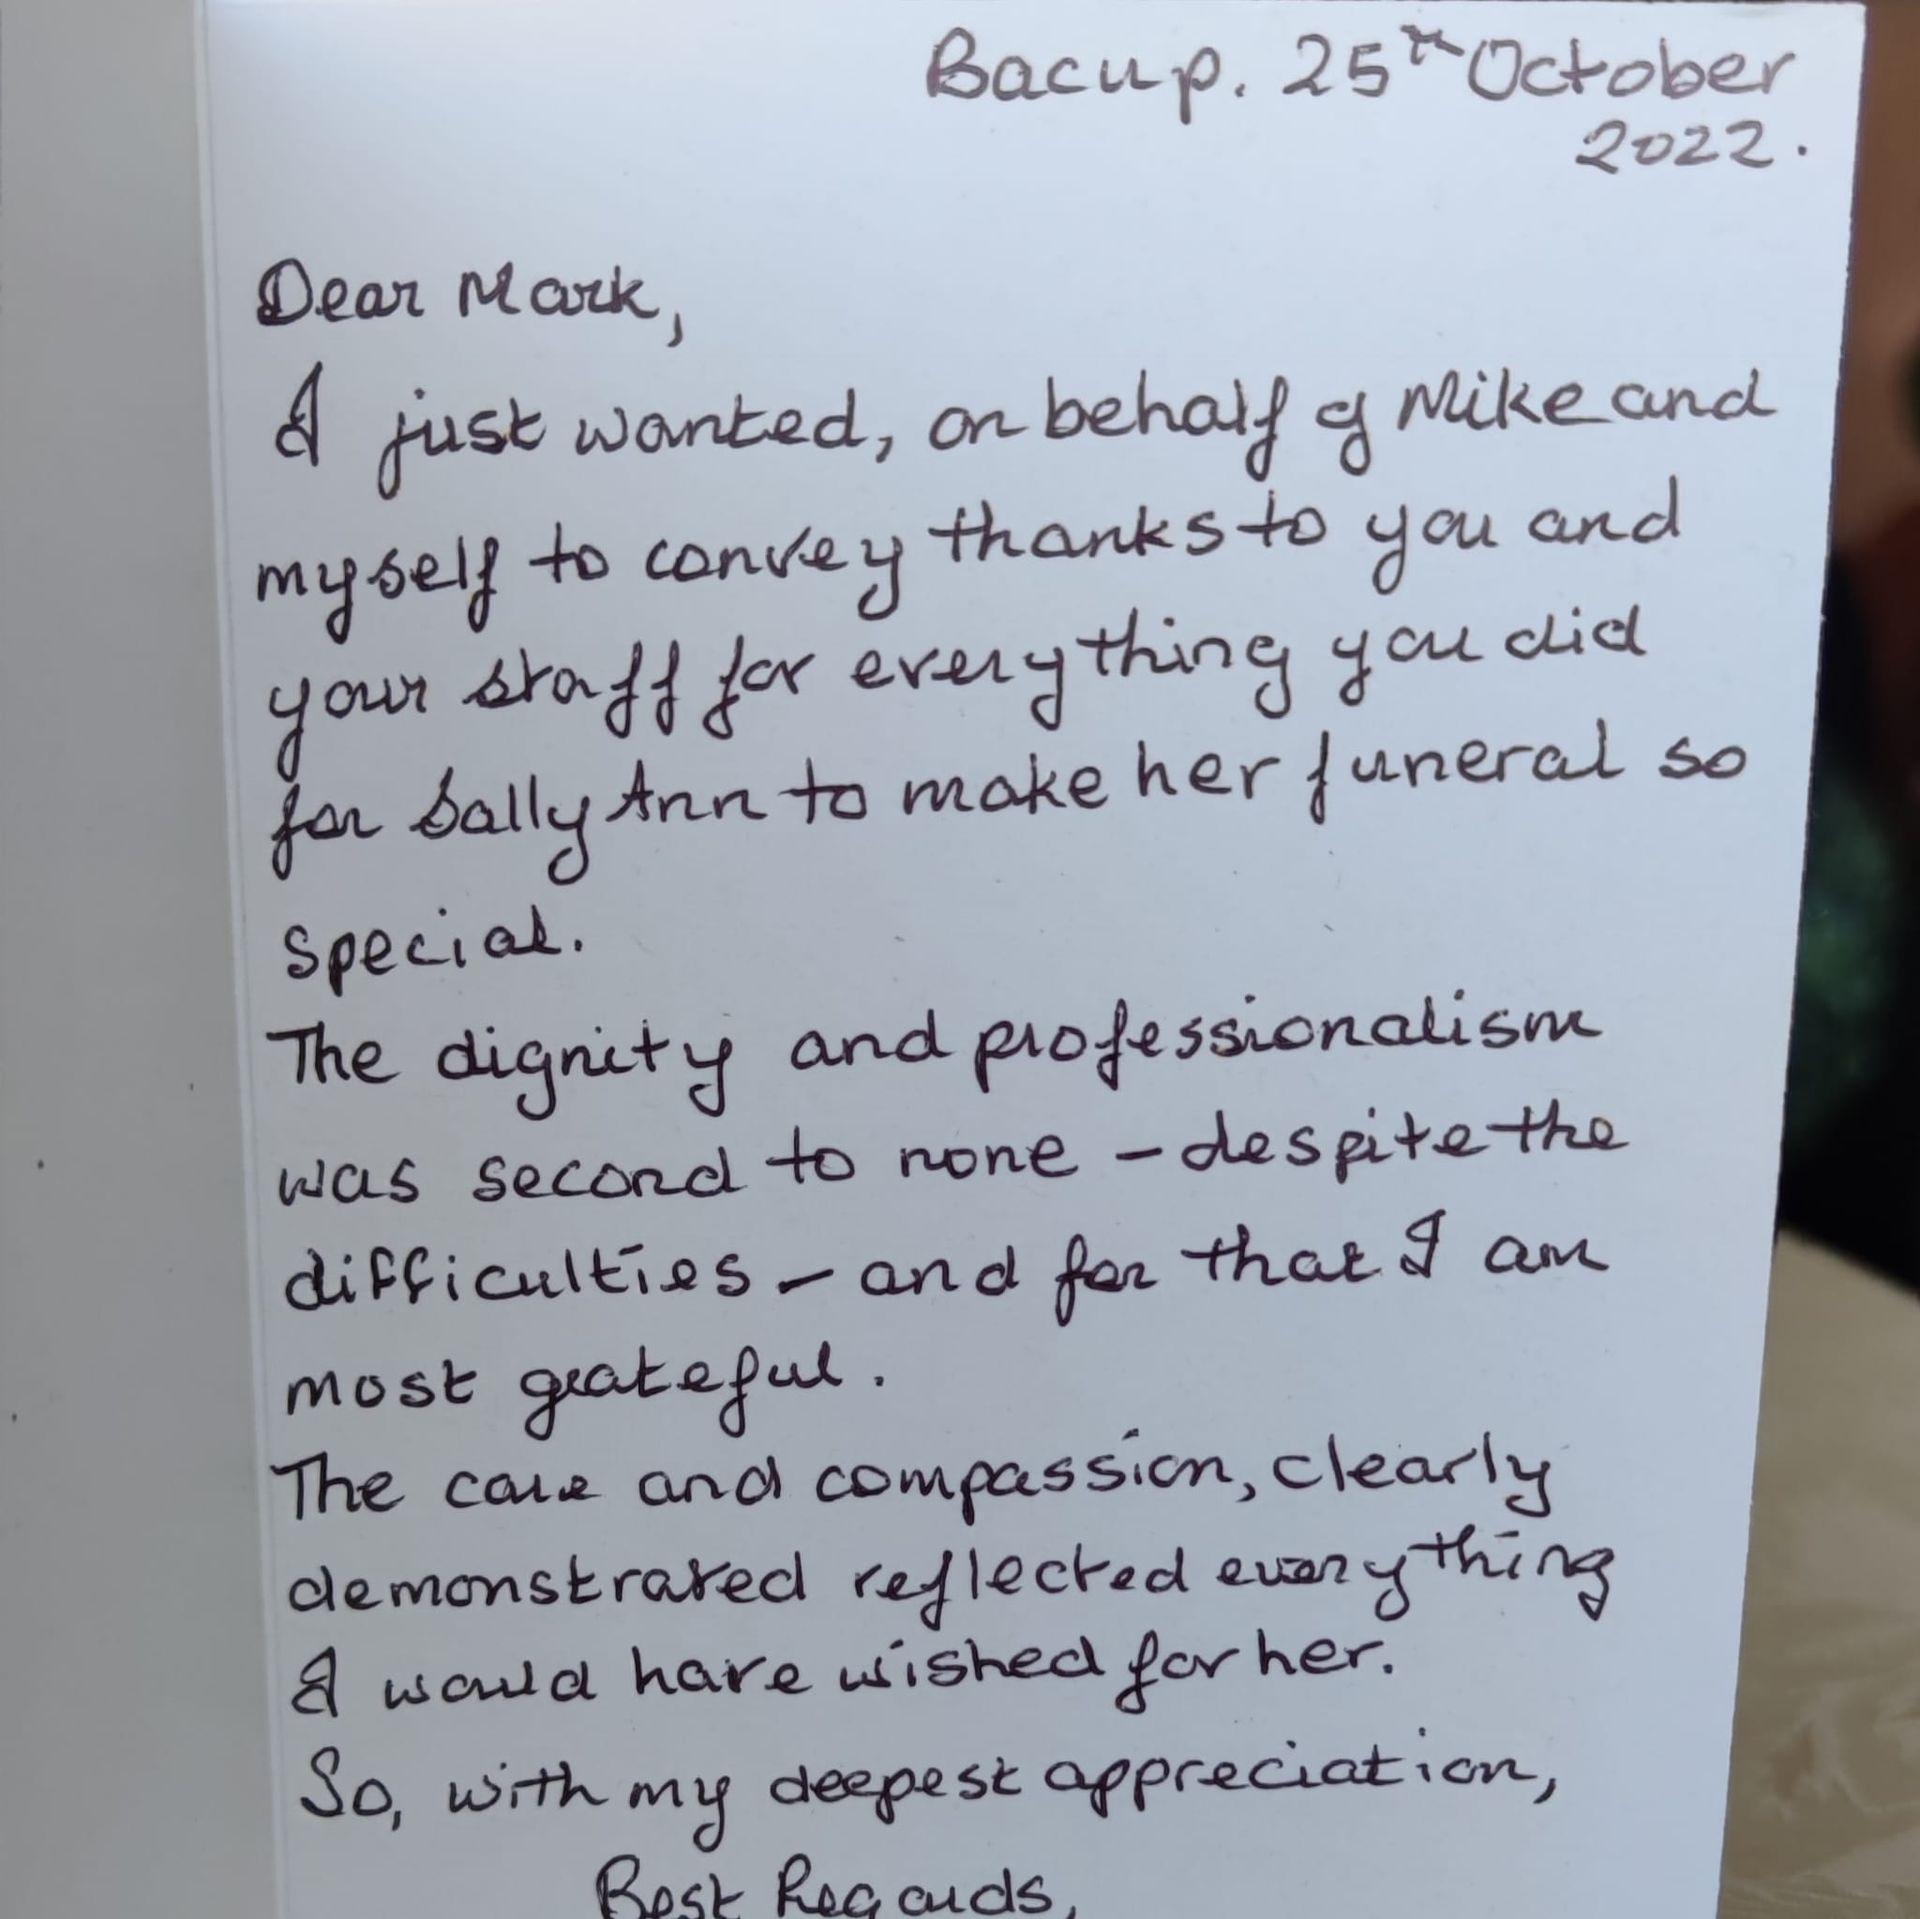 Bacup. 25th October
2022.
Dear Mark,
I just wanted, on behalf of Mike and
myself to convey thanks to you and
your staff for everything you did
for Sally Ann to make her funeral so
special.
The dignity and professionalism
was second to none - despite the
difficulties - and for that I am
most grateful.
The care and compassion, clearly
demonstrated reflected everything
I would have wished for her.
So, with my deepest appreciation,
Best Regards,